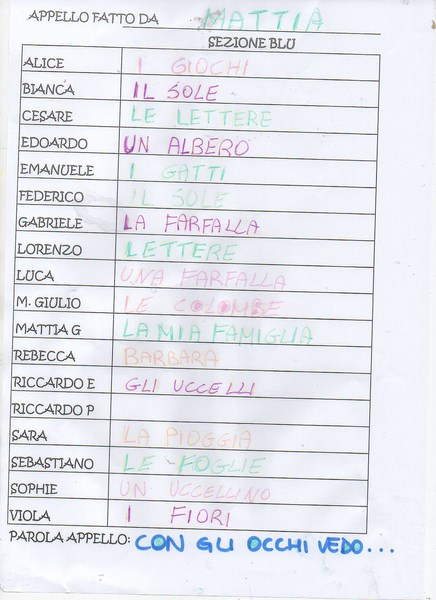 APPELLO FATTO DA MATTIA
SEZIONE BLU
ALICE I GIOCHI
BIANCA IL SOLE
CESARE LE LETTERE
EDOARDO UN ALBERO
EMANUELE I GATTI
FEDERICO IL SOLE
GABRIELE LA FARFALLA
LORENZO LETTERE
LUCA UNA FARFALLA
M. GIULIO LE COLOMBE
MATTIA G LA MIA FAMIGLIA
REBECCA BARBARA
RICCARDO E GLI UCCELLI
RICCARDO P
SARA LA PIOGGIA
SEBASTIANO LE FOGLIE
SOPHIE UN UCCELLINO
VIOLA I FIORI
PAROLA APPELLO: CON GLI OCCHI VEDO...